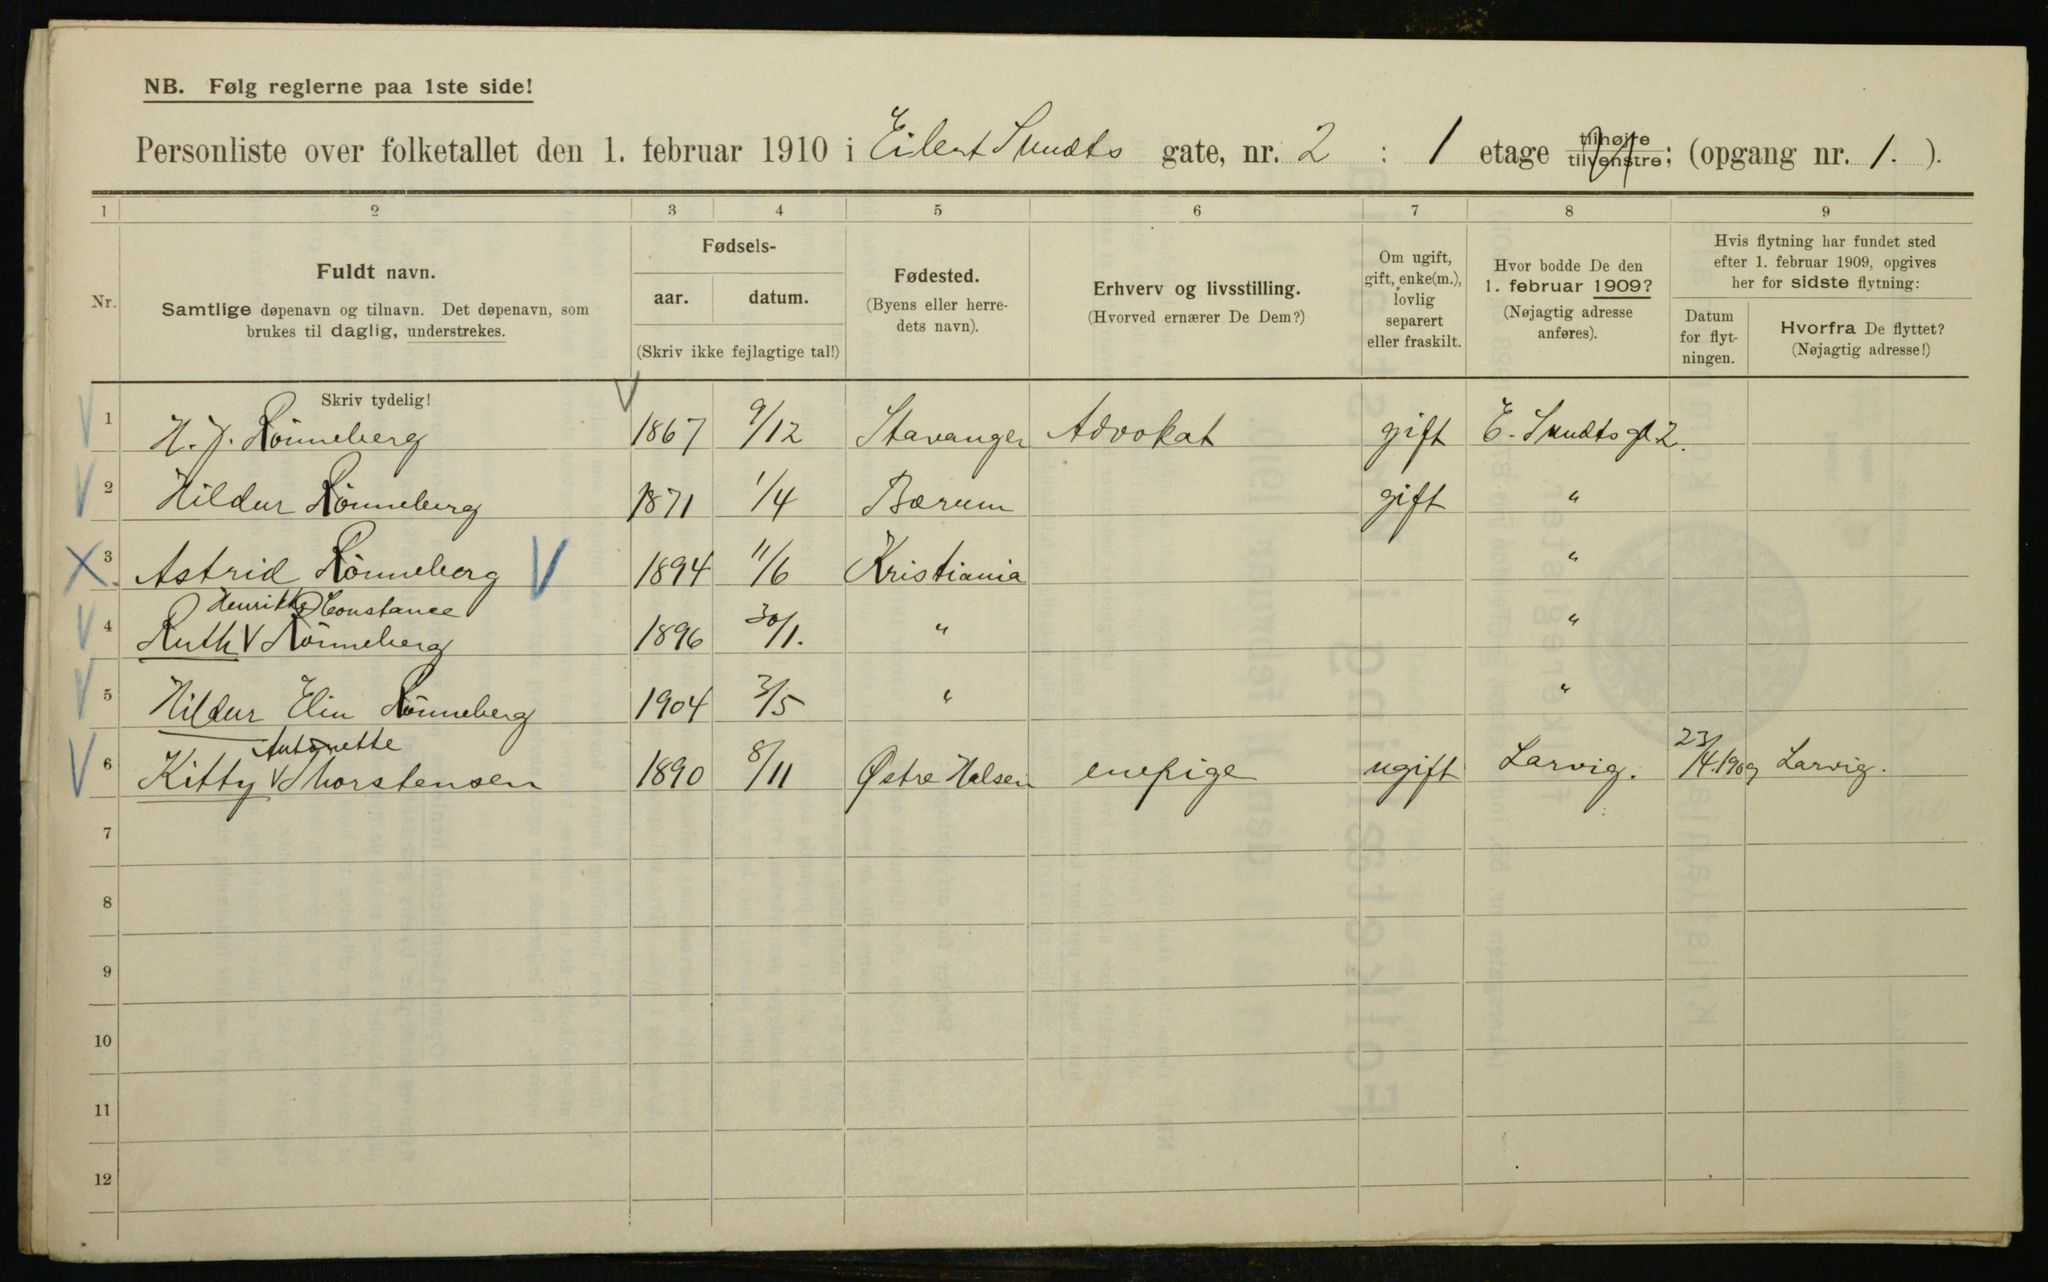 NB. Følg reglerne paa 1ste side!
Personliste over folketallet den 1. februar 1910 i Eilert Sundts gate, nr. 2 : 1 etage tilhøire tilvenstre; (opgang nr. 1. ).
1 2 3 4 5 6 7 8 9
Nr.
Fuldt navn.
Samtlige døpenavn og tilnavn. Det døpenavn, som
brukes til daglig, understrekes.
Fødsels-
aar. datum.
(Skriv ikke fejlagtige tal!)
Fødested.
(Byens eller herre-
dets navn).
Erhverv og livsstilling.
(Hvorved ernærer De Dem?)
Om ugift,
gift, enke(m.),
lovlig
separert
eller fraskilt.
Hvor bodde De den
1. februar 1909?
(Nøjagtig adresse
anføres).
Hvis flytning har fundet sted
efter 1. februar 1909, opgives
her for sidste flytning:
Datum
for flyt-
ningen.
Hvorfra De flyttet?
(Nøjagtig adresse!)
Skriv tydelig!
1 H. J. Rönneberg 1867 9/12 Stavanger Advokat gift E. Sundts gt 2.
2 Hildur Rönneberg 1871 1/4 Bærum gift "
3 Astrid Rönneberg 1894 11/6 Kristiania "
Henrikke Constance
4 Ruth V Rönneberg 1896 30/1. " "
5 Hildur Elin Rönneberg 1904 3/5 " "
Antonette
6 Kitty V Thorstensen 1890 8/11 Østre Halsen enepige ugift Larvig. 23/4.1909 Larvig.
7
8
9
10
11
12